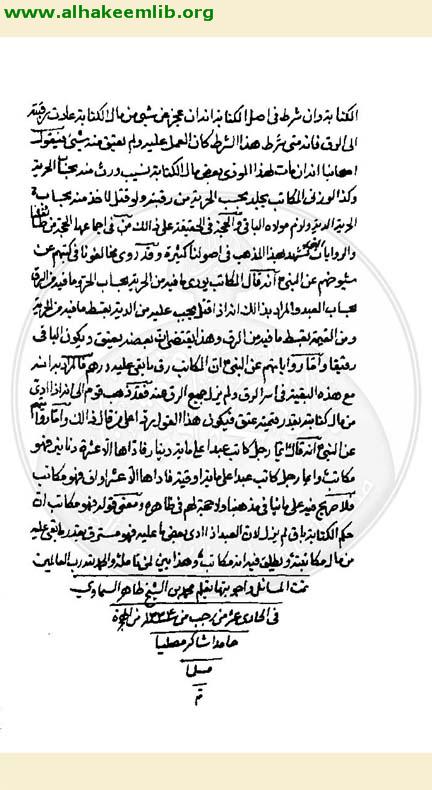 www.alhakeemlib.org
الكتابة وان شرط في اصل الكتابة انه ان عجز عن شيئ من مال الكتابة عادت رقبته
الى الرق فانه متى شرط هذا الشرط كان العمل عليه ولم يعتق منه شيئ فيقول
اصحابنا انه ان مات لهذا المودى بعض مال الكتابة نسيب ورث منه بحساب الحرية
وكذا لو زنى المكاتب يجلد بحسب الحرية من رقبته ولو قتل لاخذ منه بحساب
الحرية الدية ولزم مولاه الباقي والحجة في الحقيقة على ذلك في اجماعها الحجة من
والروايات تشهد بهذا المذهب في اصولنا كثيرة وقد روى مخالفونا في كتبهم عن
شيوخهم عن النبي ص انه قال المكاتب يودى ما فيه من الحرية بحساب الحر وما فيه من الرق
بحساب العبد والمراد بذلك انه اذا قتل يجب عليه من الدية بقسط ما فيه من الحرية
ومن القيمة بقسط ما فيه من الرق وهذا يقتضى ان بعضه يعتق ويكون الباقي
رقيقا واما رواياتهم عن النبي ص ان المكاتب رق ما بقى عليه درهم فالمراد به انه
مع هذه البقية في اسر الرق ولم يزل جميع الرق عنه فقد ذهب قوم الى انه اذا ادى
من مال كتابته بقدر قيمته عتق فيكون هذا القول ردا على من قال ذلك واما
عن النبي ص انه قال ايما رجل كاتب عبدا على مائة دينار فاداها الا عشرة دنانير فهو
مكاتب وايما رجل كاتب عبدا على مائة اوقية فاداها الا عشر اواق فهو مكاتب
فلا حجة فيه على ما نيا في مذهبنا ولا حجة لهم في ظاهره ومعنى قوله فهو مكاتب ان
حكم الكتابة باق لم يزل لان العبد اذا ادى بعض ما عليه فهو مسترق بقدر ما بقى عليه
من مال مكاتبته ويطلق فيه انه مكاتب وهذا بين لمن تامله والحمد لله رب العالمين
تمت المسائل واجوبتها بقلم محمد بن الشيخ طاهر السماوي
في الحادى عشر من رجب من ١٣٣٤ من الهجرة
حامدا شاكرا مصليا
مسلما
تم